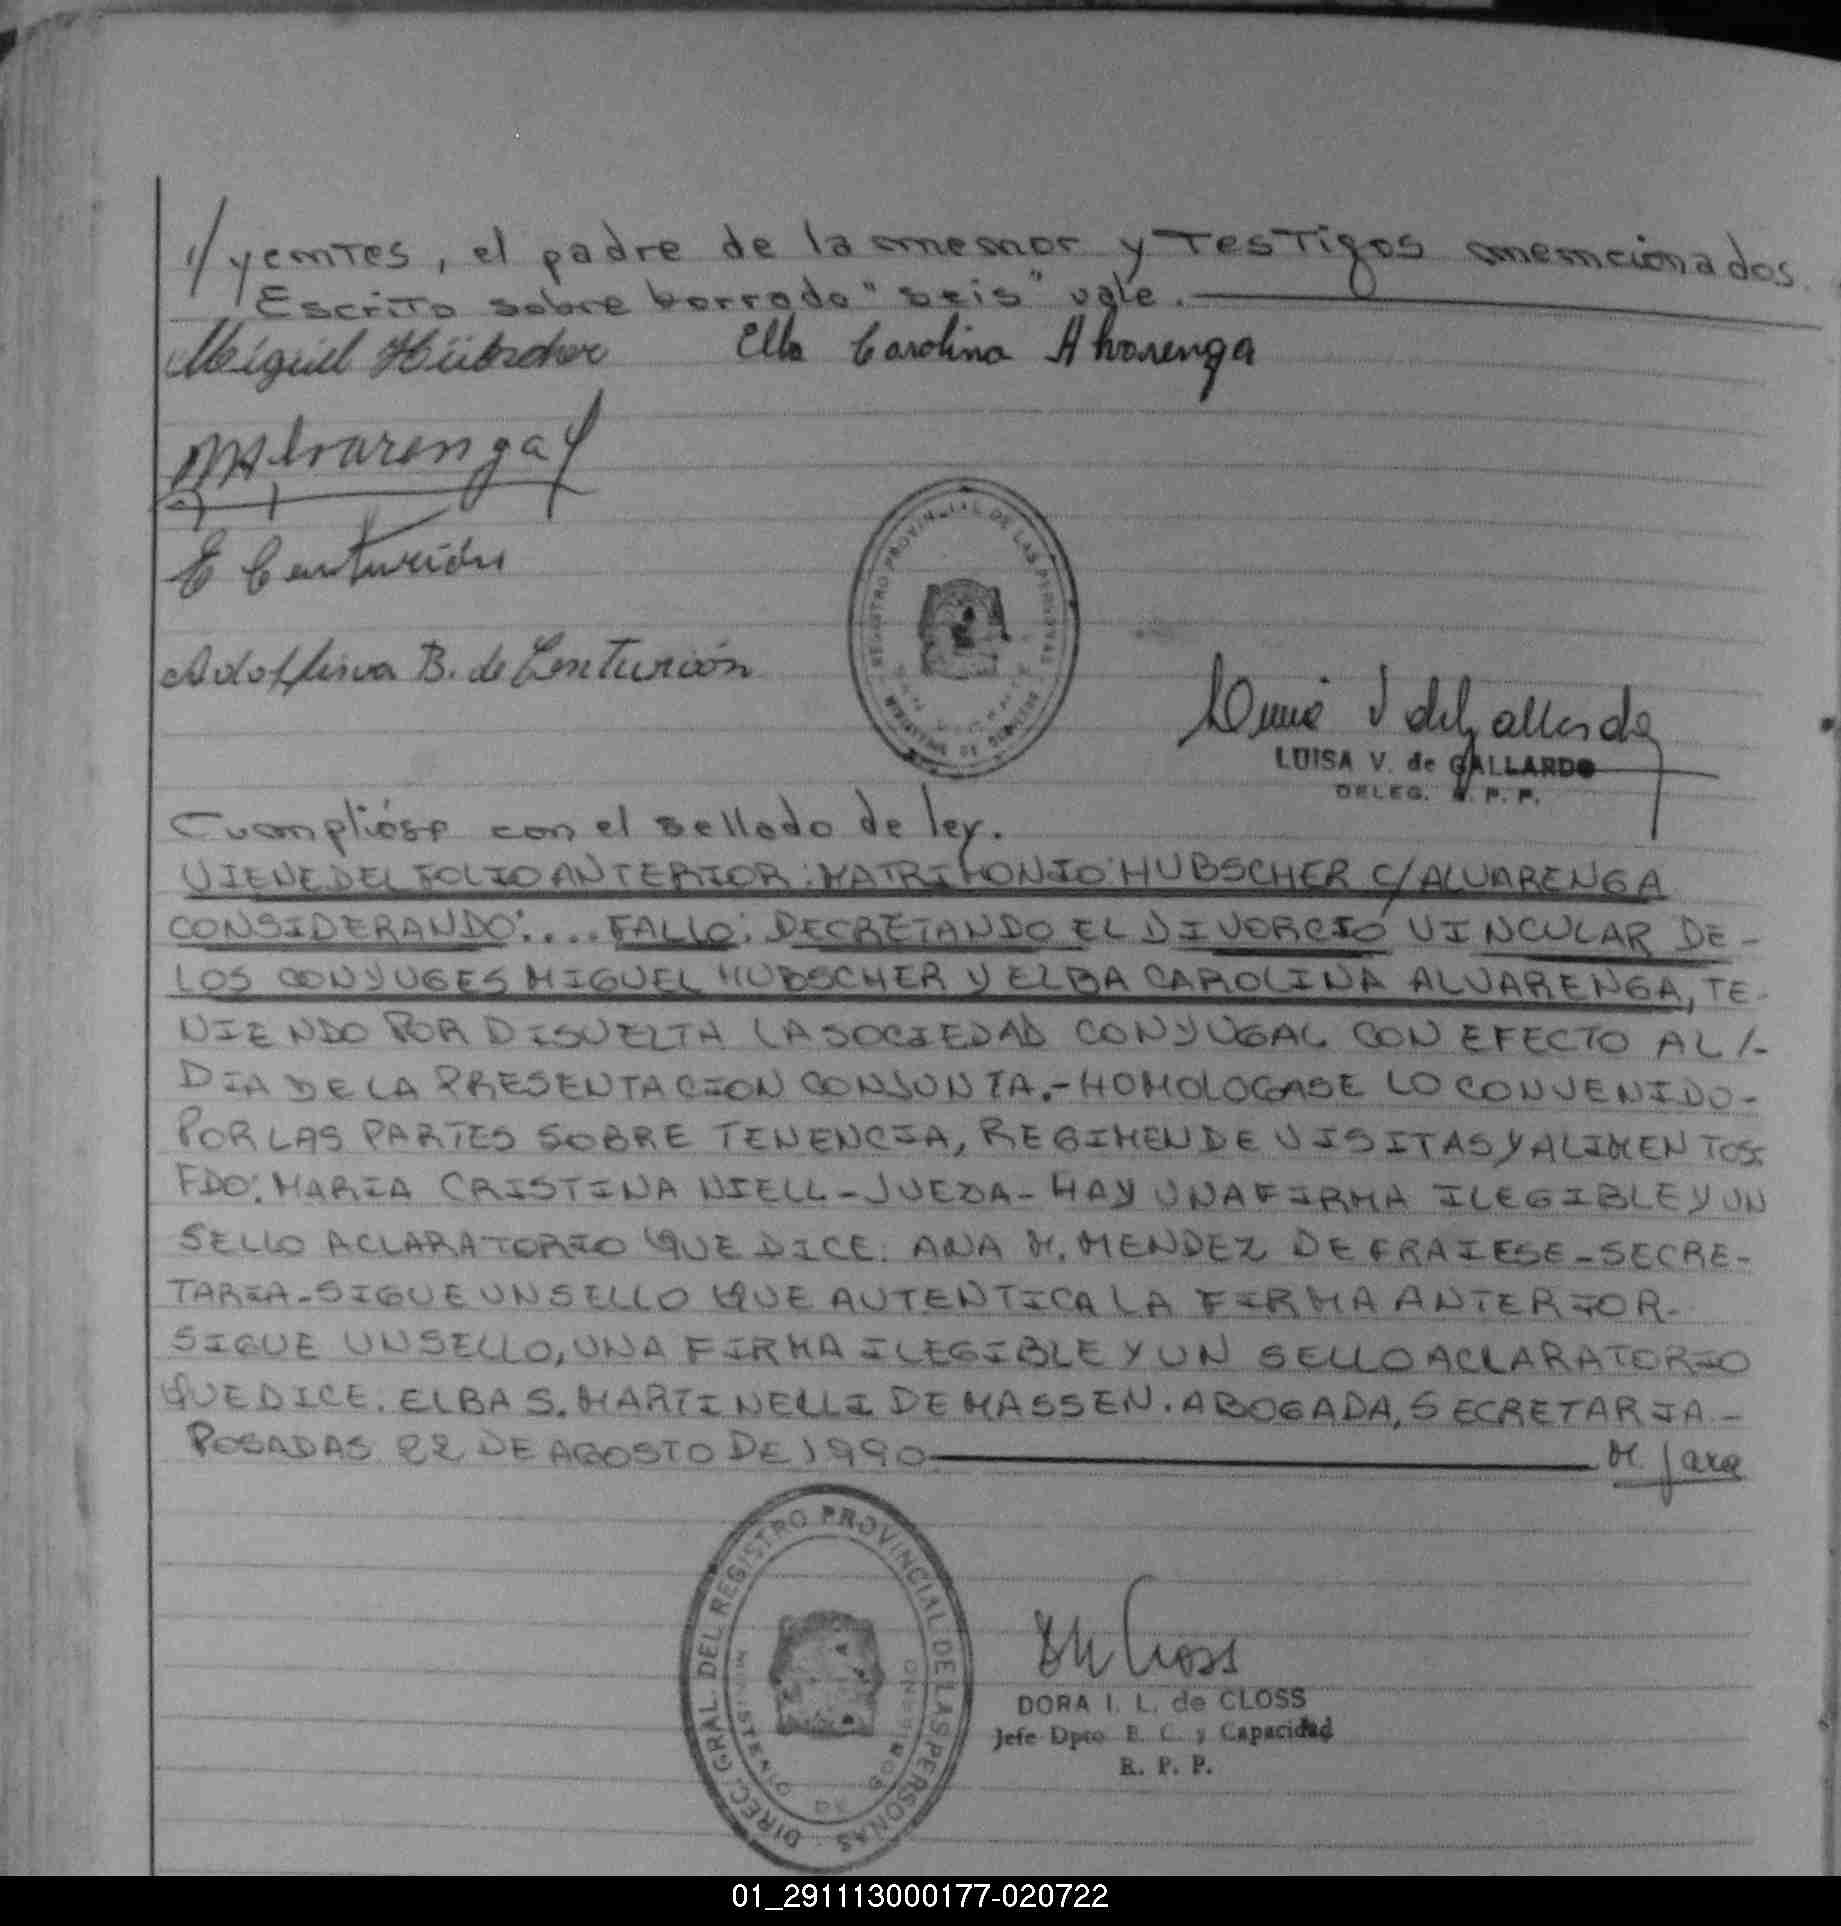 //yentes, el padre de la menor y Testigos mencionados.
Escrito sobre borrado "seis" vale.
Miguel Hübscher Elba Carolina Alvarenga
MAlvarenga
E Centurión
Adolfina B. de Centurión
REGISTRO PROVINCIAL DE LAS PERSONAS
LUISA V. de GALLARDO
DELEG. R. P. P.
Cumplióse con el sellado de ley.
VIENE DEL FOLIO ANTERIOR: MATRIMONIO HUBSCHER C/ALVARENGA
CONSIDERANDO:.... FALLO: DECRETANDO EL DIVORCIO VINCULAR DE-
LOS CONYUGES MIGUEL HUBSCHER Y ELBA CAROLINA ALVARENGA, TE-
NIENDO POR DISUELTA LA SOCIEDAD CONYUGAL CON EFECTO AL /-
DIA DE LA PRESENTACION CONJUNTA.- HOMOLOGASE LO CONVENIDO-
POR LAS PARTES SOBRE TENENCIA, REGIMEN DE VISITAS Y ALIMENTOS.
FDO: MARIA CRISTINA NIELL - JUEZA - HAY UNA FIRMA ILEGIBLE Y UN
SELLO ACLARATORIO QUE DICE: ANA M. MENDEZ DE FRAIESE - SECRE-
TARIA - SIGUE UN SELLO QUE AUTENTICA LA FIRMA ANTERIOR-
SIGUE UN SELLO, UNA FIRMA ILEGIBLE Y UN SELLO ACLARATORIO
QUE DICE: ELBA S. MARTINELLI DE MASSEN. ABOGADA, SECRETARIA.-
POSADAS 22 DE AGOSTO DE 1990 M. Jara
DIREC. GRAL. DEL REGISTRO PROVINCIAL DE LAS PERSONAS
MINISTERIO DE GOBIERNO
DORA I. L. de CLOSS
Jefe Dpto E. C. y Capacidad
R. P. P.
01_291113000177-020722